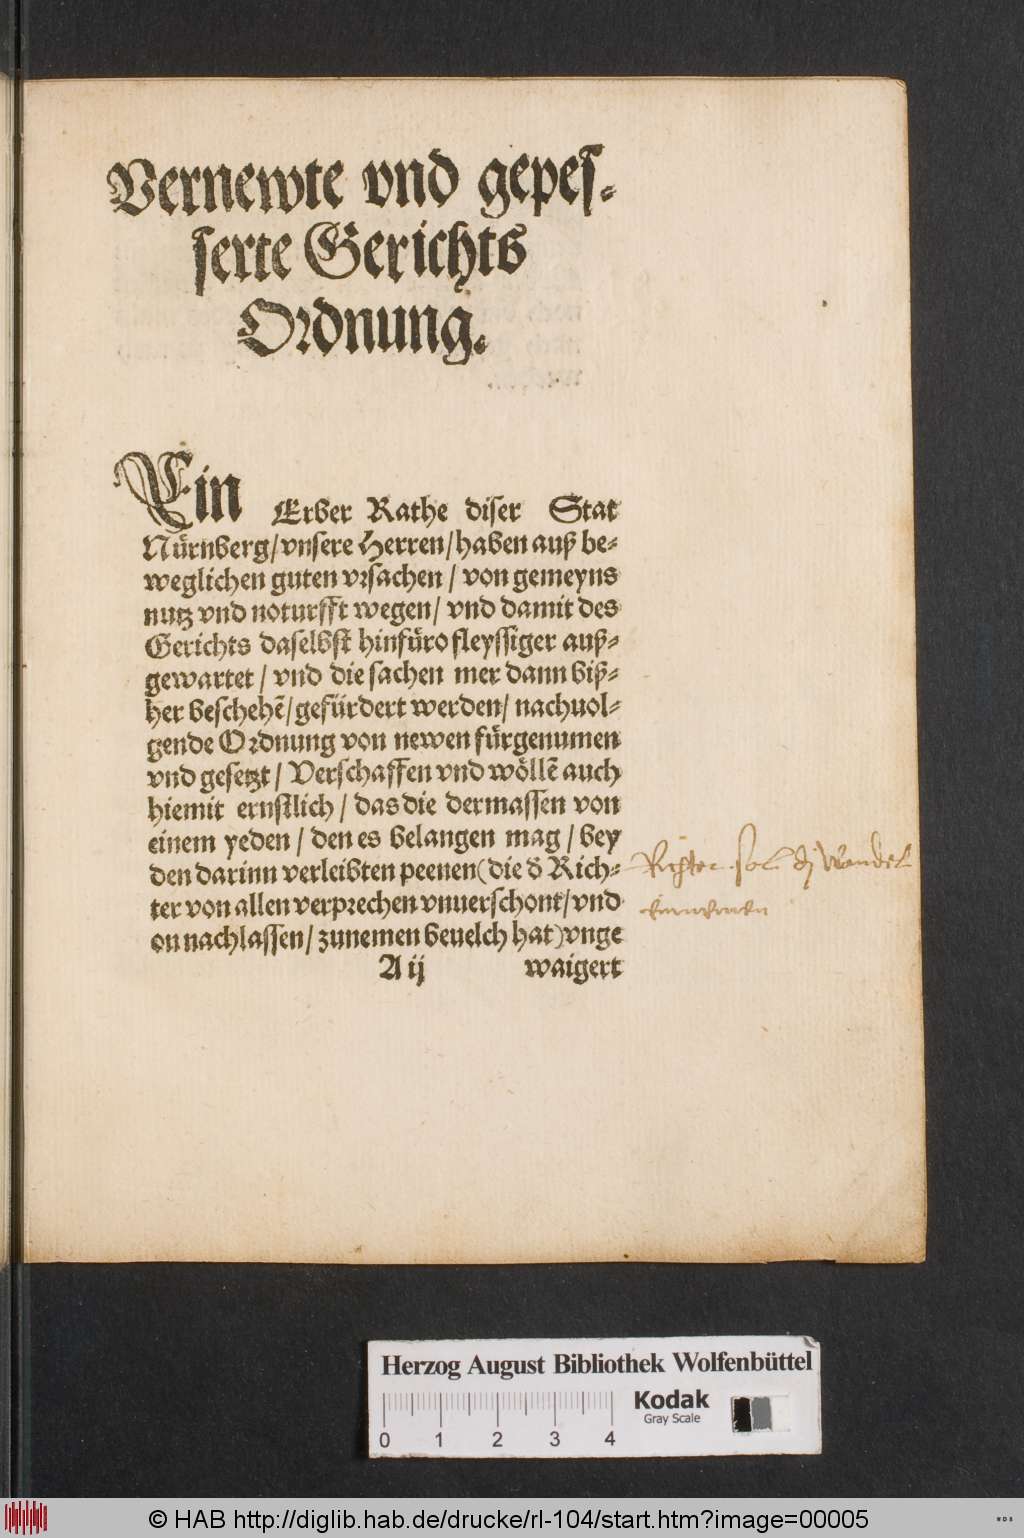 Vernewte vnd gepes-
serte Gerichts
Ordnung.
Ein Erber Rathe diser Stat
Nürnberg/vnsere Herren/haben auß be-
weglichen guten vrsachen / von gemeyns
nutz vnd noturfft wegen/ vnd damit des
Gerichts daselbst hinfüro fleyssiger auß-
gewartet / vnd die sachen mer dann biß-
her beschehē/gefürdert werden/ nachuol-
gende Ordnung von newen fürgenumen
vnd gesetzt / Verschaffen vnd wöllē auch
hiemit ernstlich / das die dermassen von
einem yeden / den es belangen mag / bey
den darinn verleibten peenen(die d̄ Rich-
ter von allen verprechen vnuerschont/vnd
on nachlassen/zunemen beuelch hat)vnge
A ij waigert
Richter sol dj Wandel
Herzog August Bibliothek Wolfenbüttel
Kodak
Gray Scale
0 1 2 3 4
© HAB http://diglib.hab.de/drucke/rl-104/start.htm?image=00005